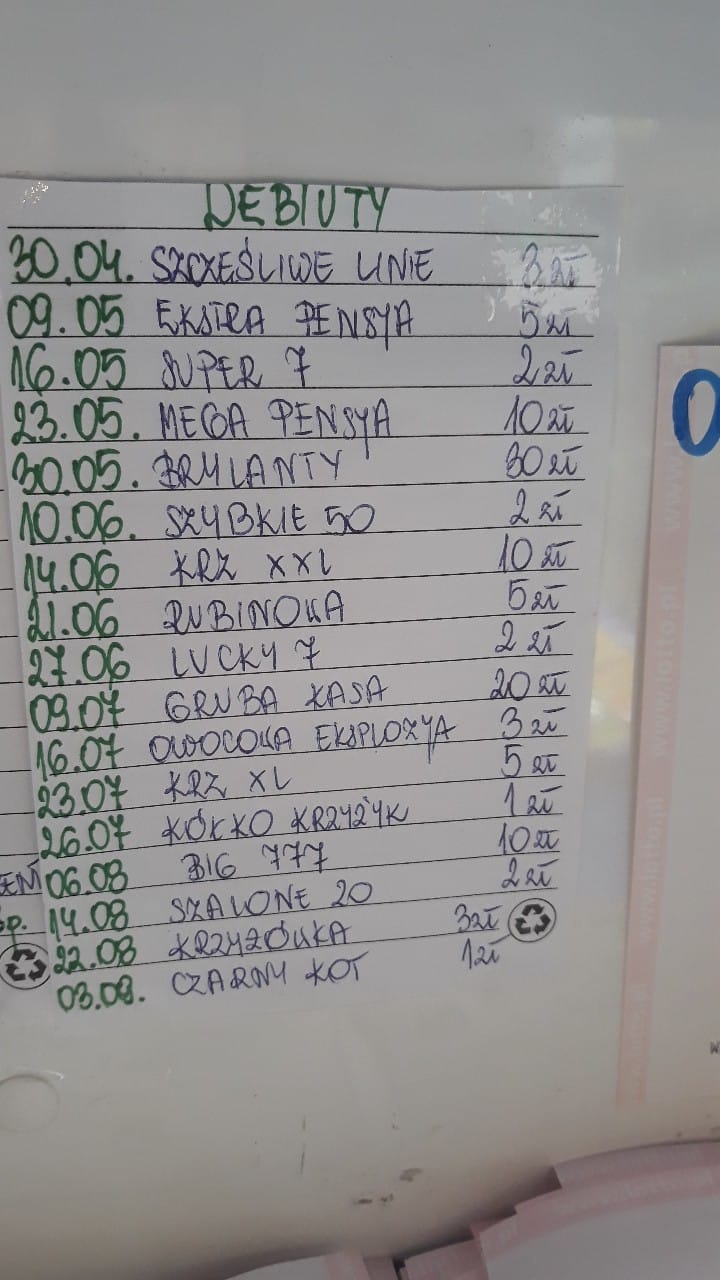 DEBIUTY
30.04. SZCZĘŚLIWE LINIE 3 zł
09.05 EKSTRA PENSYA 5 zł
16.05 SUPER 7 2 zł
23.05. MEGA PENSYA 10 zł
30.05. BRYLANTY 30 zł
10.06. SZYBKIE 50 2 zł
14.06 KRZ XXL 10 zł
21.06 RUBINOWA 5 zł
27.06 LUCKY 7 2 zł
09.07 GRUBA KASA 20 zł
16.07 OWOCOWA EKSPLOZYA 3 zł
23.07 KRZ XL 5 zł
26.07 KÓŁKO KRZYŻYK 1 zł
06.08 BIG 777 10 zł
14.08 SZALONE 20 2 zł
22.08 KRZYŻÓWKA 3 zł
03.09. CZARNY KOT 1 zł
O
www.lotto.pl